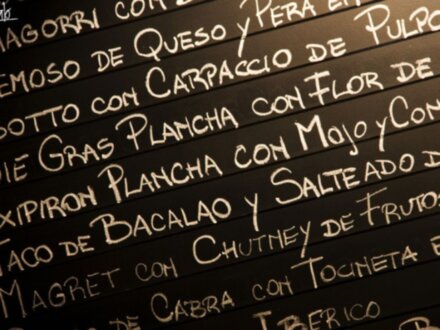 MAGORRI CON
EMOSO DE QUESO Y PERA EN
SOTTO CON CARPACCIO DE PULPO
OIE GRAS PLANCHA CON FLOR DE
XIPIRON PLANCHA CON MOJO Y CON
TACO DE BACALAO Y SALTEADO D
MAGRET CON CHUTNEY DE FRUTOS
DE CABRA CON TOCINETA
IBERICO